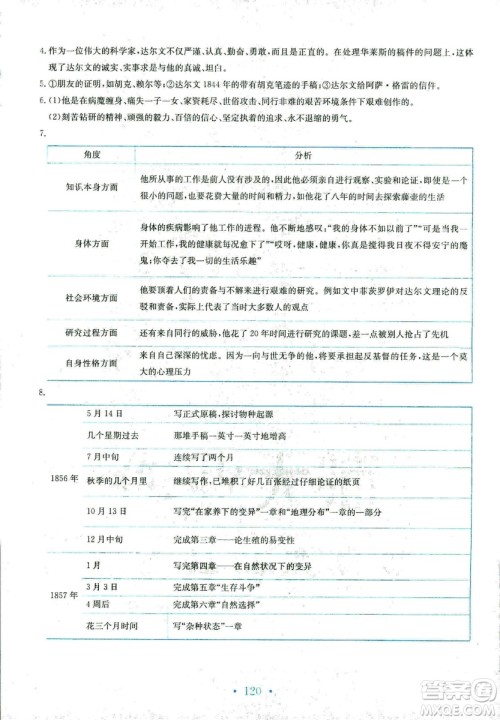 4. 作为一位伟大的科学家,达尔文不仅严谨、认真、勤奋、勇敢,而且非常的正直。在处理华莱斯的稿件的问题上,这体
现了达尔文的诚实、实事求是与坦诚、坦白。
5. ①朋友的证明,如胡克、赖尔等;②达尔文 1844 年的带有胡克笔迹的手稿;③达尔文给阿萨·格雷的信件。
6. (1)他是在病魔缠身、痛失一子一女、家资耗尽、世俗攻击、同行非难的艰苦环境条件下艰难创作的。
(2)刻苦钻研的精神、顽强的毅力、百倍的信心、坚定的决心、永不屈服的勇气。
7.
角度 分析
知识本身方面 他所从事的工作是前人没有涉及的,因此他要亲自进行观察、实验和论证,即使是一个
很小的问题,也要花费大量的时间和精力,如他花费了大量的时间去探索藤壶的生活
身体方面 身体的疾病影响了他工作的进程。他不断地感慨:“我的身体不如以前了”“可是我一
开始工作,我的健康就每况愈下”“哎呀,健康,健康,你对我是个日夜不得安宁的魔
鬼;你夺去了我一切的生活乐趣”
社会环境方面 他要顶着人们的责备与不解来进行艰难的研究。例如文中菲茨罗伊对达尔文理论的反
驳和责备,实际上代表了大多数人的观点
研究过程方面 还有来自同行的威胁,他花了 20 年时间进行研究的课题,差一点被别人抢占了先机
自身性格方面 来自自己深深的忧虑。因为一向与世无争的他,要承担起反基督的任务,这是一个莫
大的心理压力
8.
1856 年
5 月 14 日 写正式原稿,探讨物种起源
几个星期过去 那堆手稿一英寸一英寸地增高
7 月中旬 连续写了两个月
秋季的几个月里 继续写作,已堆积了好几百张经过仔细论证的纸页
10 月 13 日 写完“在家养下的变异”一章和“地理分布”一章
12 月中旬 完成第三章——论生殖的易变性
1857 年
1 月 写完第四章——在自然状况下的变异
3 月 3 日 完成第五章“生存斗争”
4 周后 完成第六章“自然选择”
花三个月时间 写“杂种状态”一章
120
答案圈
MXQE.COM